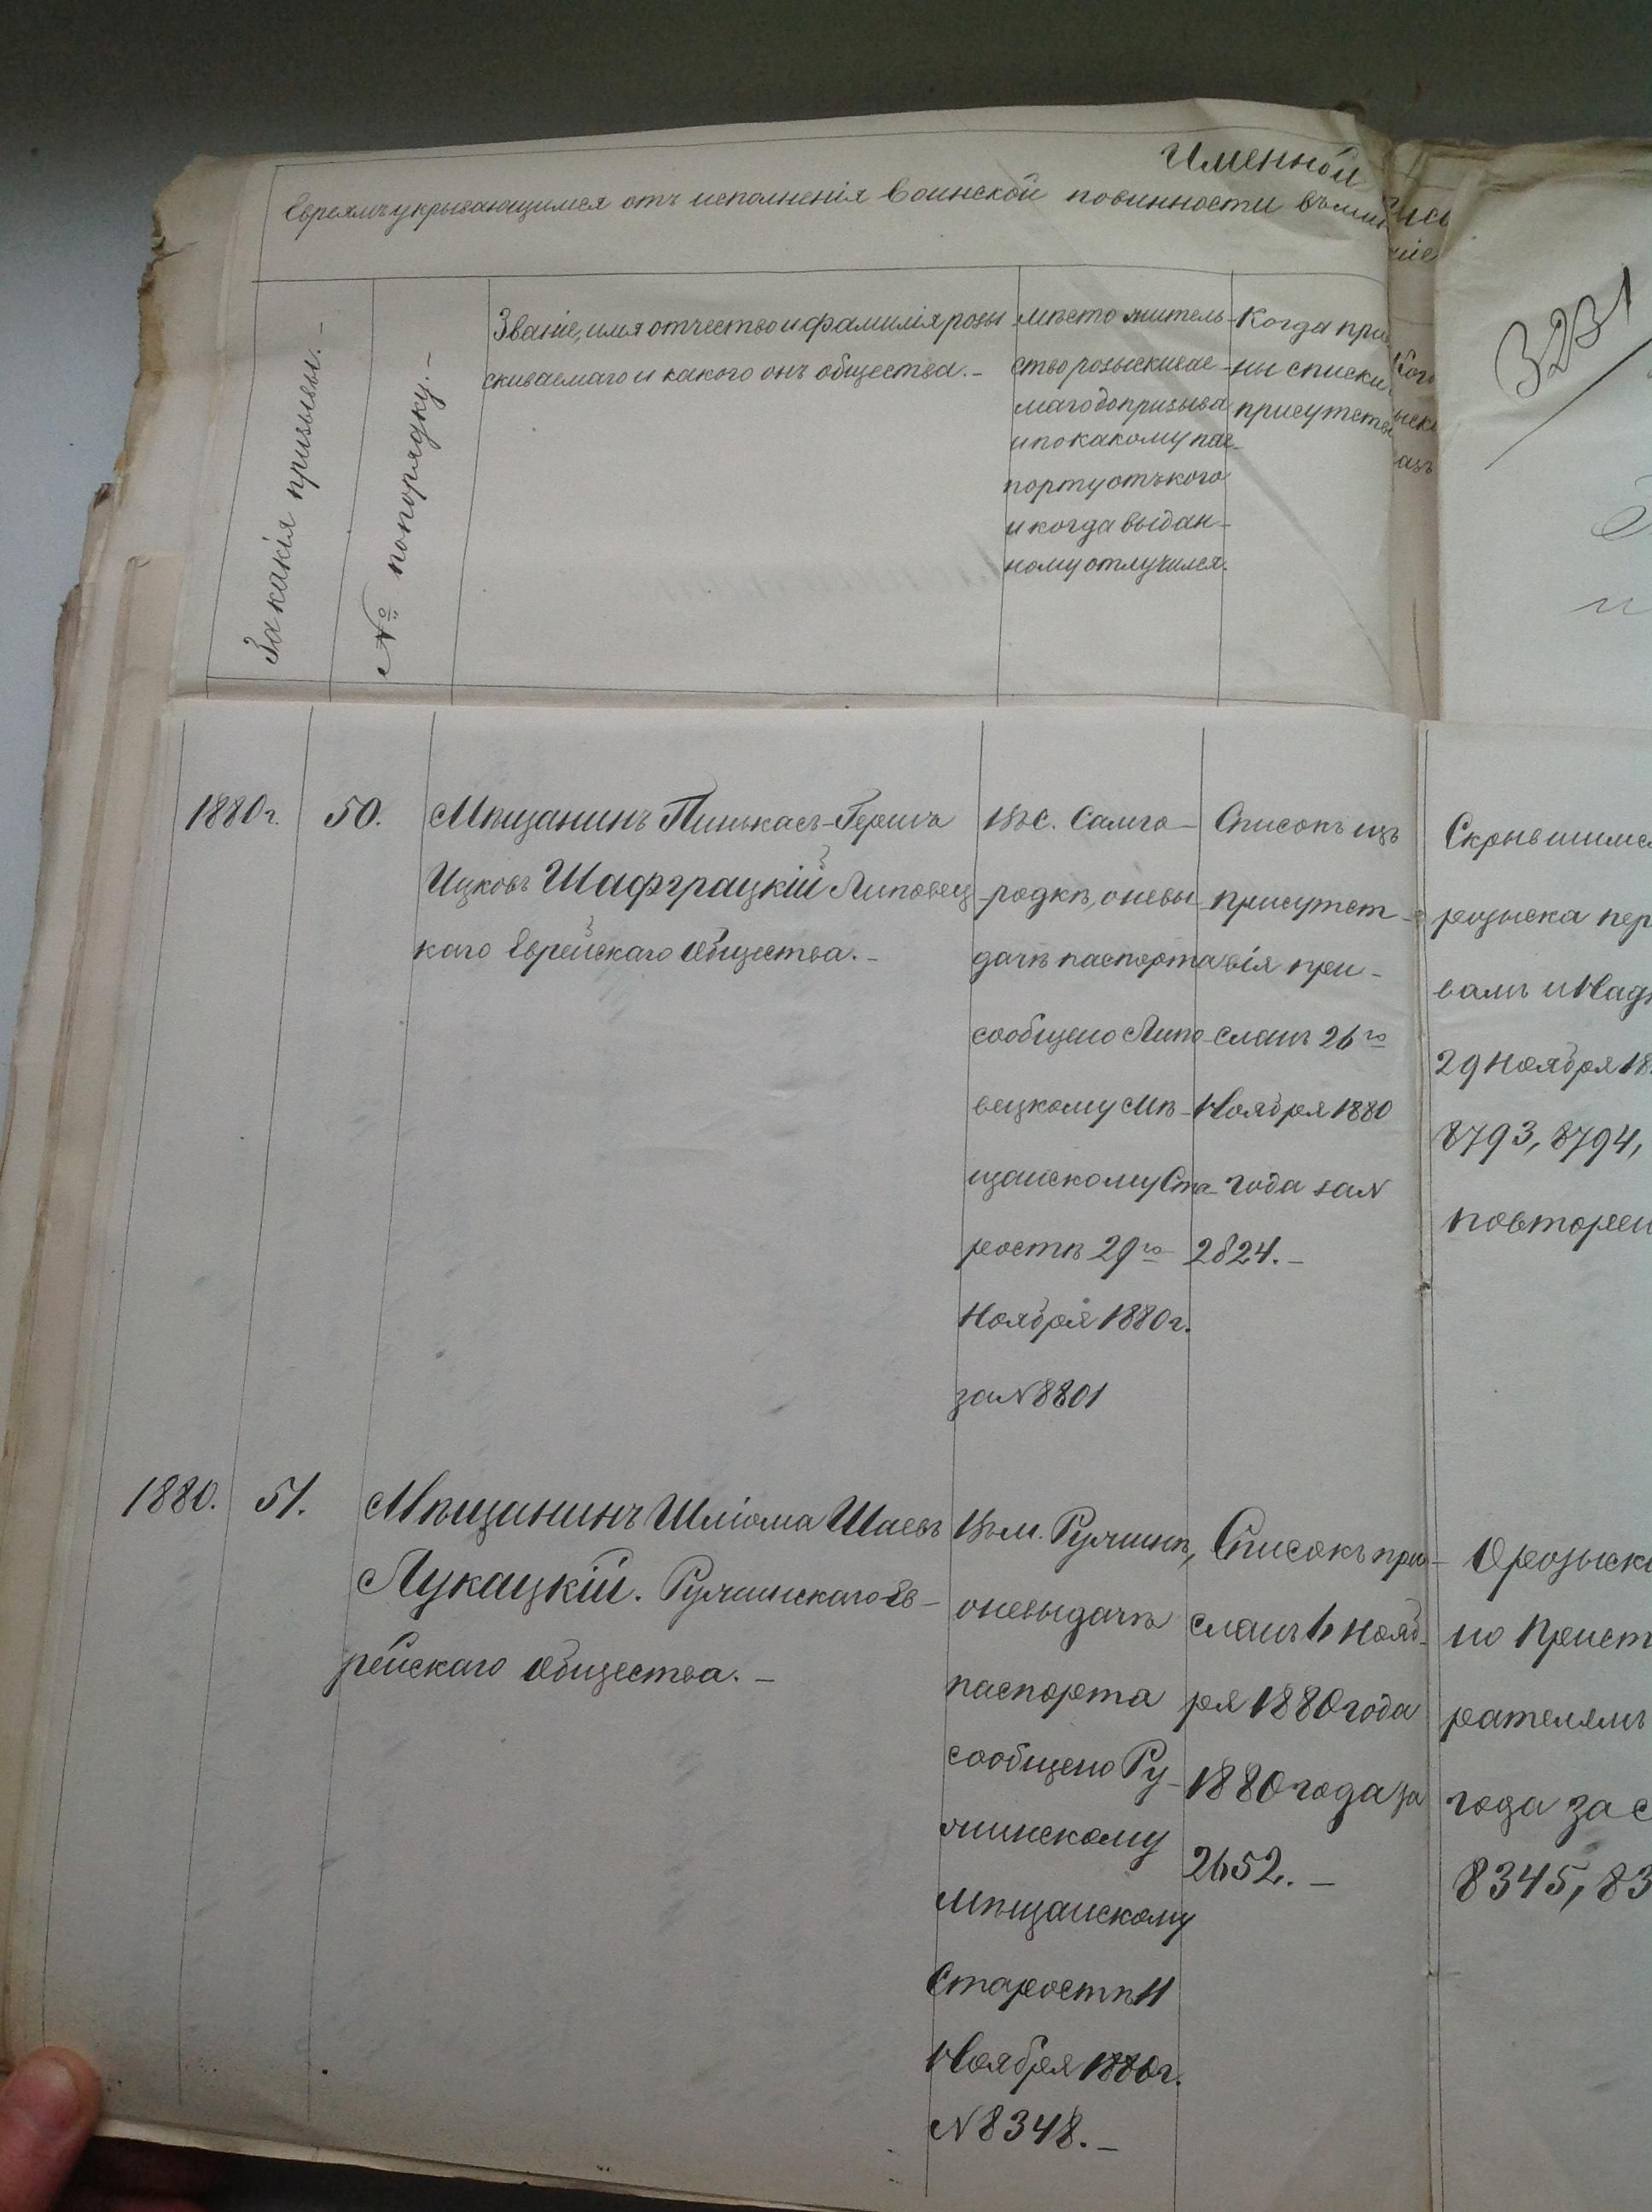 Именной
Евреямъ укрывающимся отъ исполненія воинской повинности
За какія призывы.-
№ по порядку.-
Званіе, имя отчество и фамилія розы
скиваемаго и какого онъ общества.-
мѣсто житель-
ство розыскивае-
маго до призыва
и по какому пас-
порту отъ кого
и когда выдан-
ному отлучился.
Когда при
ни списки
присутств
3231
1880г.
50.
Мѣщанинъ Пинькасъ-Гершъ
Ицковъ Шафграцкій Липовец
каго Еврейскаго Общества.-
Въ с. Самго-
родкѣ, о невы-
дачѣ паспорта
сообщено Липо-
вецкому Мѣ-
щанскому Ста-
ростѣ 29го
Ноября 1880г.
за N 8801
Списокъ изъ
присутст-
вія при-
сланъ 26го
Ноября 1880
года за N
2824.-
Скрывшимся
розыска пер
вамъ и Надз
29 Ноября 18
8793, 8794,
повторен
1880.
51.
Мѣщанинъ Шліома Шаевъ
Лукацкій. Ружинскаго Ев-
рейскаго Общества.-
Въ м. Ружинѣ,
о невыдачѣ
паспорта
сообщено Ру-
жинскому
Мѣщанскому
Старостѣ 11
Ноября 1880г.
N 8348.-
Списокъ при-
сланъ 6 Нояб-
ря 1880 года
1880 года за
2652.-
О розыск
но Прист
рателямъ
года за
8345, 83